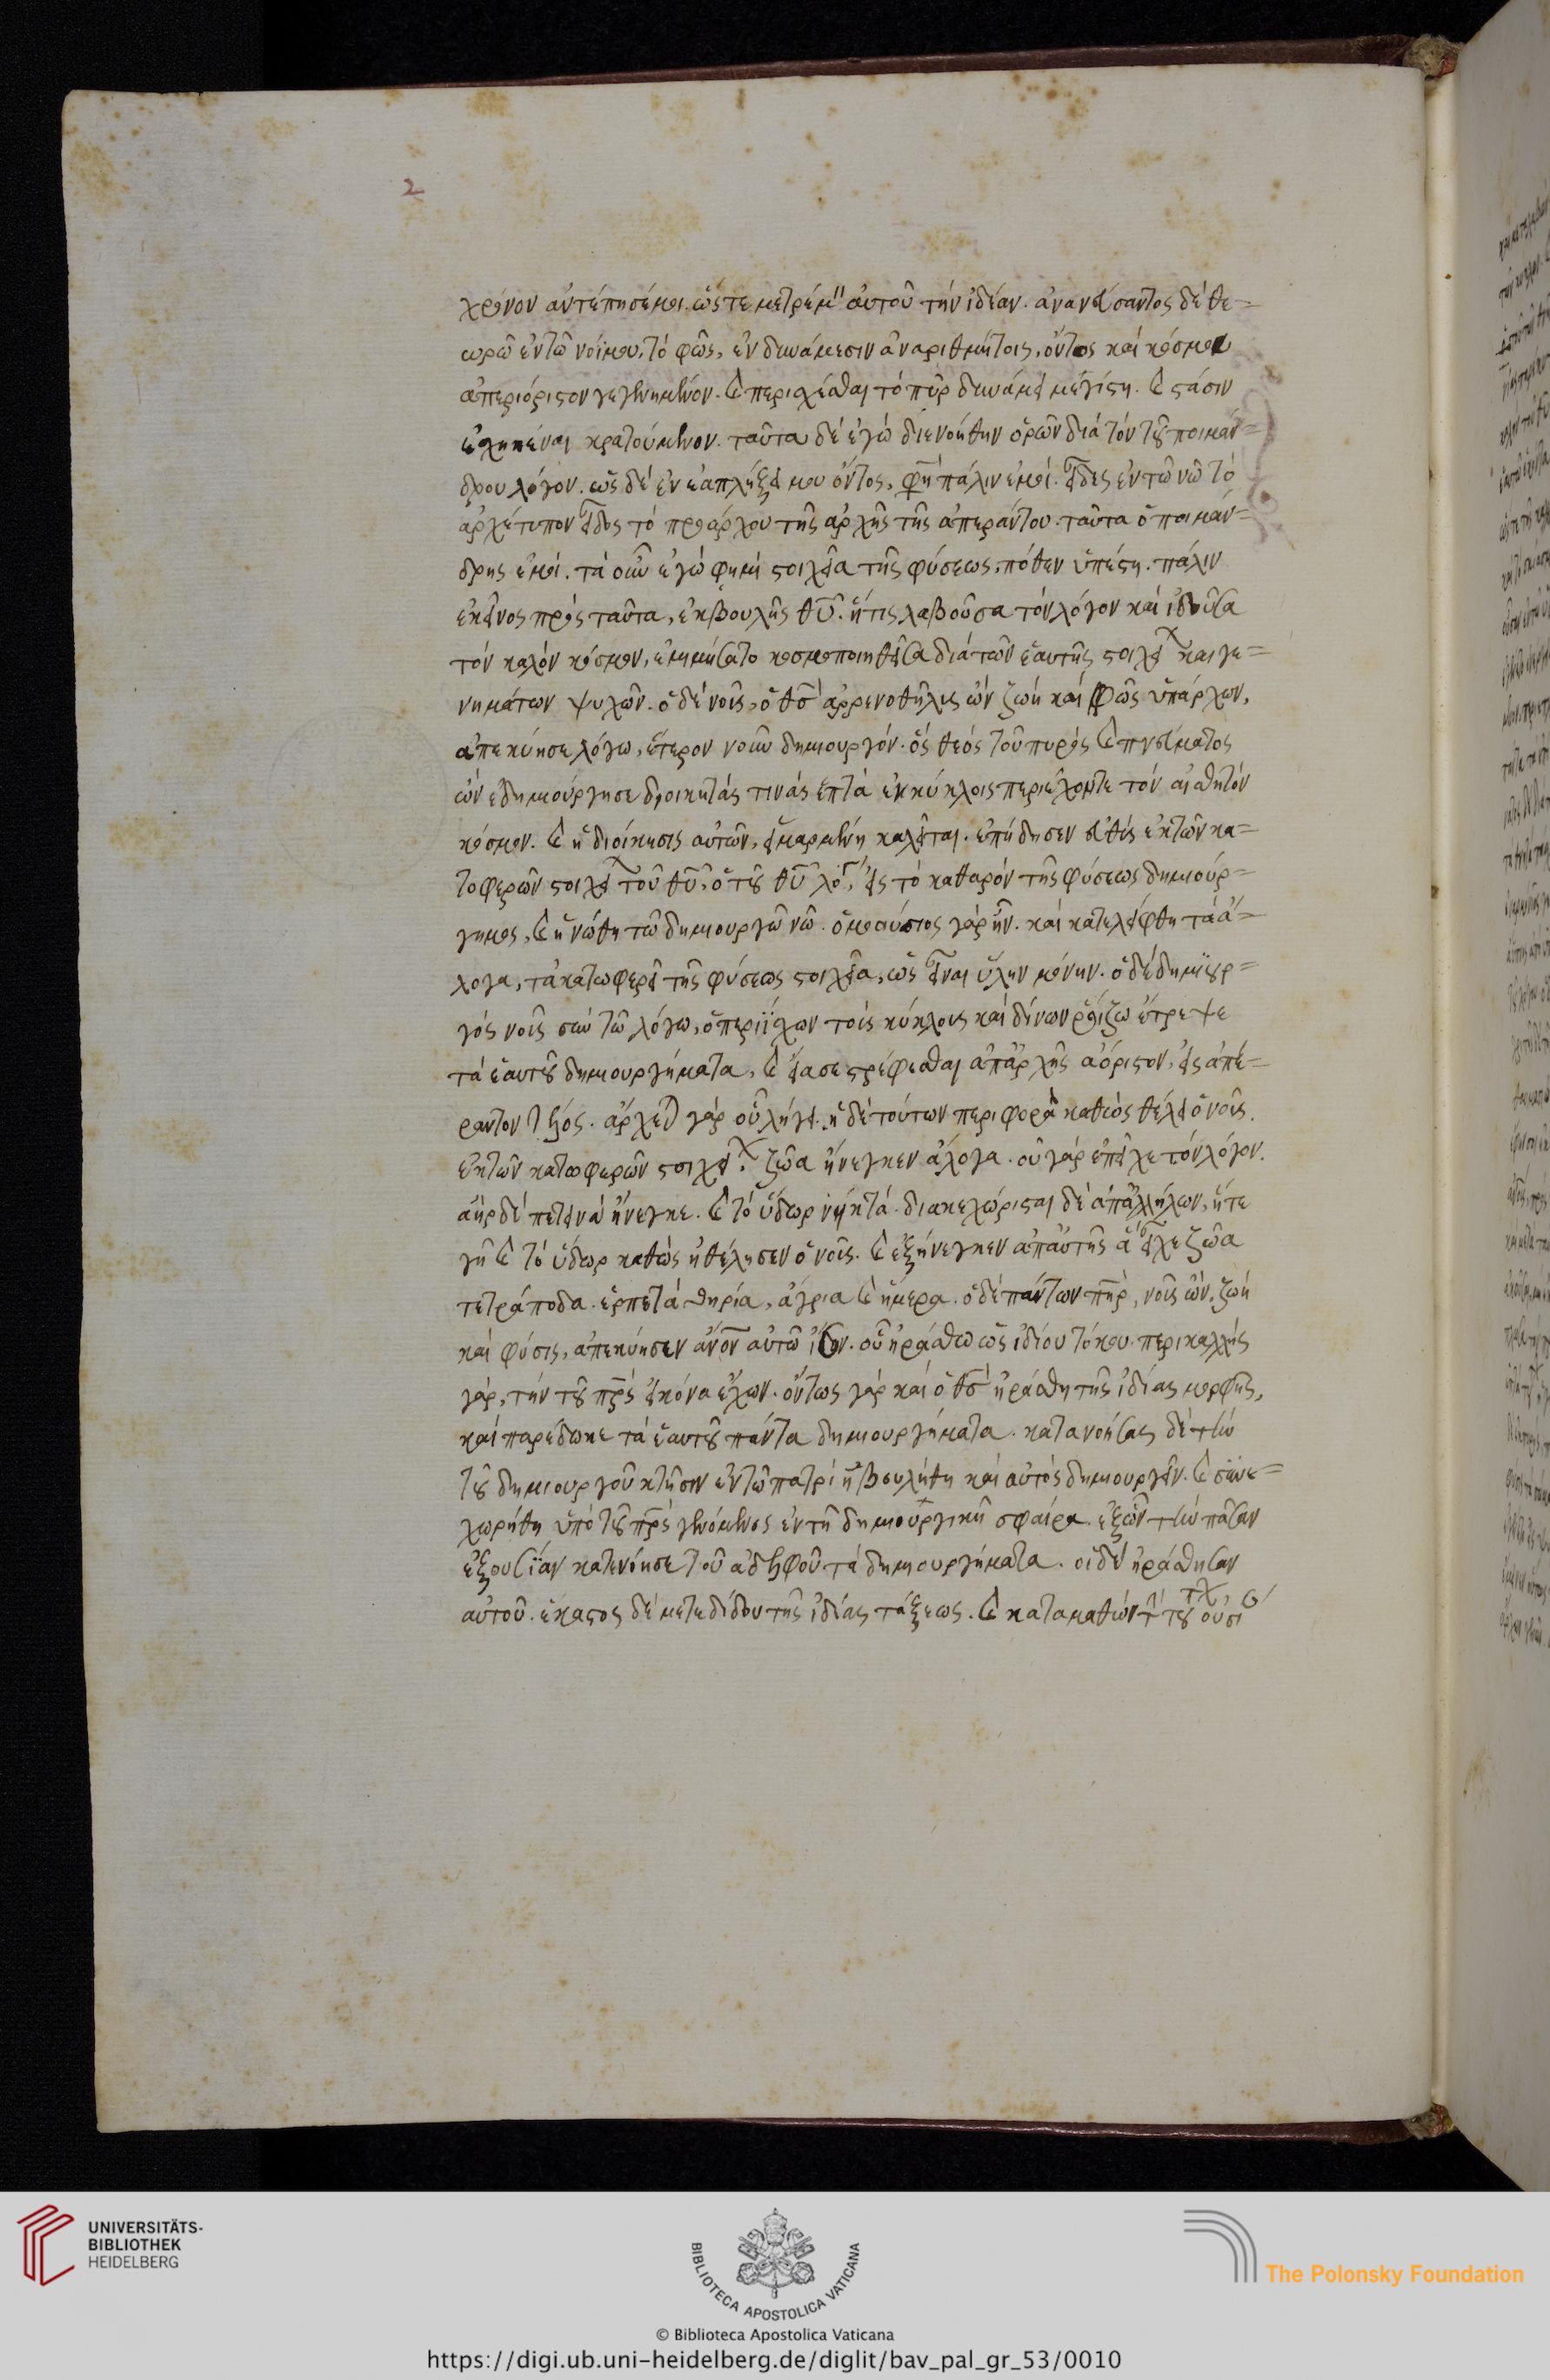 2
χρόνον ἀντέπησέ μοι. ὥστε με τρέμιν αὐτοῦ τὴν ἰδέαν. ἀνανεύσαντος δὲ θε=
ωρῶ ἐν τῶ νοΐ μου, τὸ φῶς, ἐν δυνάμεσιν ἀναριθμήτοις, ὄντος καὶ κόσμον
ἀπεριόριστον γεγενημένον. καὶ περισχέσθαι τὸ πῦρ δυνάμει μεγίστη. καὶ στάσιν
ἐσχηκέναι κρατούμενον. ταῦτα δὲ ἐγὼ διενοήθην ὁρῶν διὰ τὸν τοῦ ποιμάν=
δρου λόγον. ὡς δὲ ἐν ἐκπλήξει μου ὄντος, φησὶ πάλιν ἐμοί. εἶδες ἐν τῶ νῶ τὸ
ἀρχέτυπον εἶδος τὸ προάρχον τῆς ἀρχῆς τῆς ἀπεράντου. ταῦτα ὁ ποιμάν=
δρης ἐμοί. τὰ οὖν ἐγώ φημι στοιχεῖα τῆς φύσεως, πόθεν ὑπέστη. πάλιν
ἐκεῖνος πρὸς ταῦτα, ἐκ βουλῆς θῦ. ἥτις λαβοῦσα τὸν λόγον καὶ ἰδοῦσα
τὸν καλὸν κόσμον, ἐμιμήσατο κοσμοποιηθεῖσα διὰ τῶν ἑαυτῆς στοιχεί καὶ γε=
νημάτων ψυχῶν. ὁ δὲ νοῦς, ὁ θς ἀρρενοθῆλυς ὢν ζωὴ καὶ φῶς ὑπάρχων,
ἀπεκύησε λόγω, ἕτερον νοῦν δημιουργόν. ὃς θεὸς τοῦ πυρὸς καὶ πνεύματος
ὢν ἐδημιούργησε διοικητάς τινας ἑπτὰ ἐν κύκλοις περιέχοντε τὸν αἰσθητὸν
κόσμον. καὶ ἡ διοίκησις αὐτῶν, εἱμαρμένη καλεῖται. ἐπήδησεν εὐθὺς ἐκ τῶν κα=
τοφερῶν στοιχεί τοῦ θῦ, ὁ τοῦ θῦ λό, εἰς τὸ καθαρὸν τῆς φύσεως δημιούρ=
γημα, καὶ ἡνώθη τῶ δημιουργῶ νῶ. ὁμοούσιος γὰρ ἦν. καὶ κατελείφθη τὰ ἄ=
λογα, τὰ κατωφερῆ τῆς φύσεως στοιχεῖα, ὡς εἶναι ὕλην μόνην. ὁ δὲ δημιουρ=
γὸς νοῦς σὺν τῶ λόγω, ὁ περιΐσχων τοὺς κύκλους καὶ δίνων ῥοίζω ἔτρεψε
τὰ ἑαυτοῦ δημιουργήματα, καὶ εἴασε στρέφεσθαι ἀπ' ἀρχῆς ἀόριστον, εἰς ἀπέ=
ραντον τέλος. ἄρχεται γὰρ οὗ λήγει. ἡ δὲ τούτων περιφορὰ καθὼς θέλει ὁ νοῦς.
ἐκ τῶν κατωφερῶν στοιχεί. ζῶα ἤνεγκεν ἄλογα. οὐ γὰρ ἐπεῖχε τὸν λόγον.
ἀὴρ δὲ πετεινὰ ἤνεγκε. καὶ τὸ ὕδωρ νηκτά. διακεχώρισται δὲ ἀπ' ἀλλήλων, ἥτε
γῆ καὶ τὸ ὕδωρ καθὼς ἠθέλησεν ὁ νοῦς. καὶ ἐξήνεγκεν ἀπ' αὐτῆς ἃ εἶχε ζῶα
τετράποδα. ἑρπετὰ θηρία, ἄγρια καὶ ἥμερα. ὁ δὲ πάντων πηρ, νοῦς ὢν, ζωὴ
καὶ φύσις, ἀπεκύησεν ἄνον αὐτῶ ἴσον. οὗ ἠράσθω ὡς ἰδίου τόκου. περικαλλὴς
γάρ, τὴν τοῦ πρς εἰκόνα ἔχων. ὄντως γὰρ καὶ ὁ θς ἠράσθη τῆς ἰδίας μορφῆς,
καὶ παρέδωκε τὰ ἑαυτοῦ πάντα δημιουργήματα. κατανοήσας δὲ τὴν
τοῦ δημιουργοῦ κτῆσιν ἐν τῶ πατρὶ ἠβουλήθη καὶ αὐτὸς δημιουργεῖν. καὶ συνε=
χωρήθη ὑπὸ τοῦ πρς γενόμενος ἐν τῆ δημιουργικῆ σφαίρα. ἕξων τὴν πᾶσαν
ἐξουσίαν κατενόησε τοῦ ἀδελφοῦ τὰ δημιουργήματα. οἱ δὲ ἠράσθησαν
αὐτοῦ. ἕκαστος δὲ μετεδίδου τῆς ἰδίας τάξεως. καὶ καταμαθὼν τὴν τούτων οὐσί
UNIVERSITÄTS-
BIBLIOTHEK
HEIDELBERG
BIBLIOTECA APOSTOLICA VATICANA
The Polonsky Foundation
© Biblioteca Apostolica Vaticana
https://digi.ub.uni-heidelberg.de/diglit/bav_pal_gr_53/0010